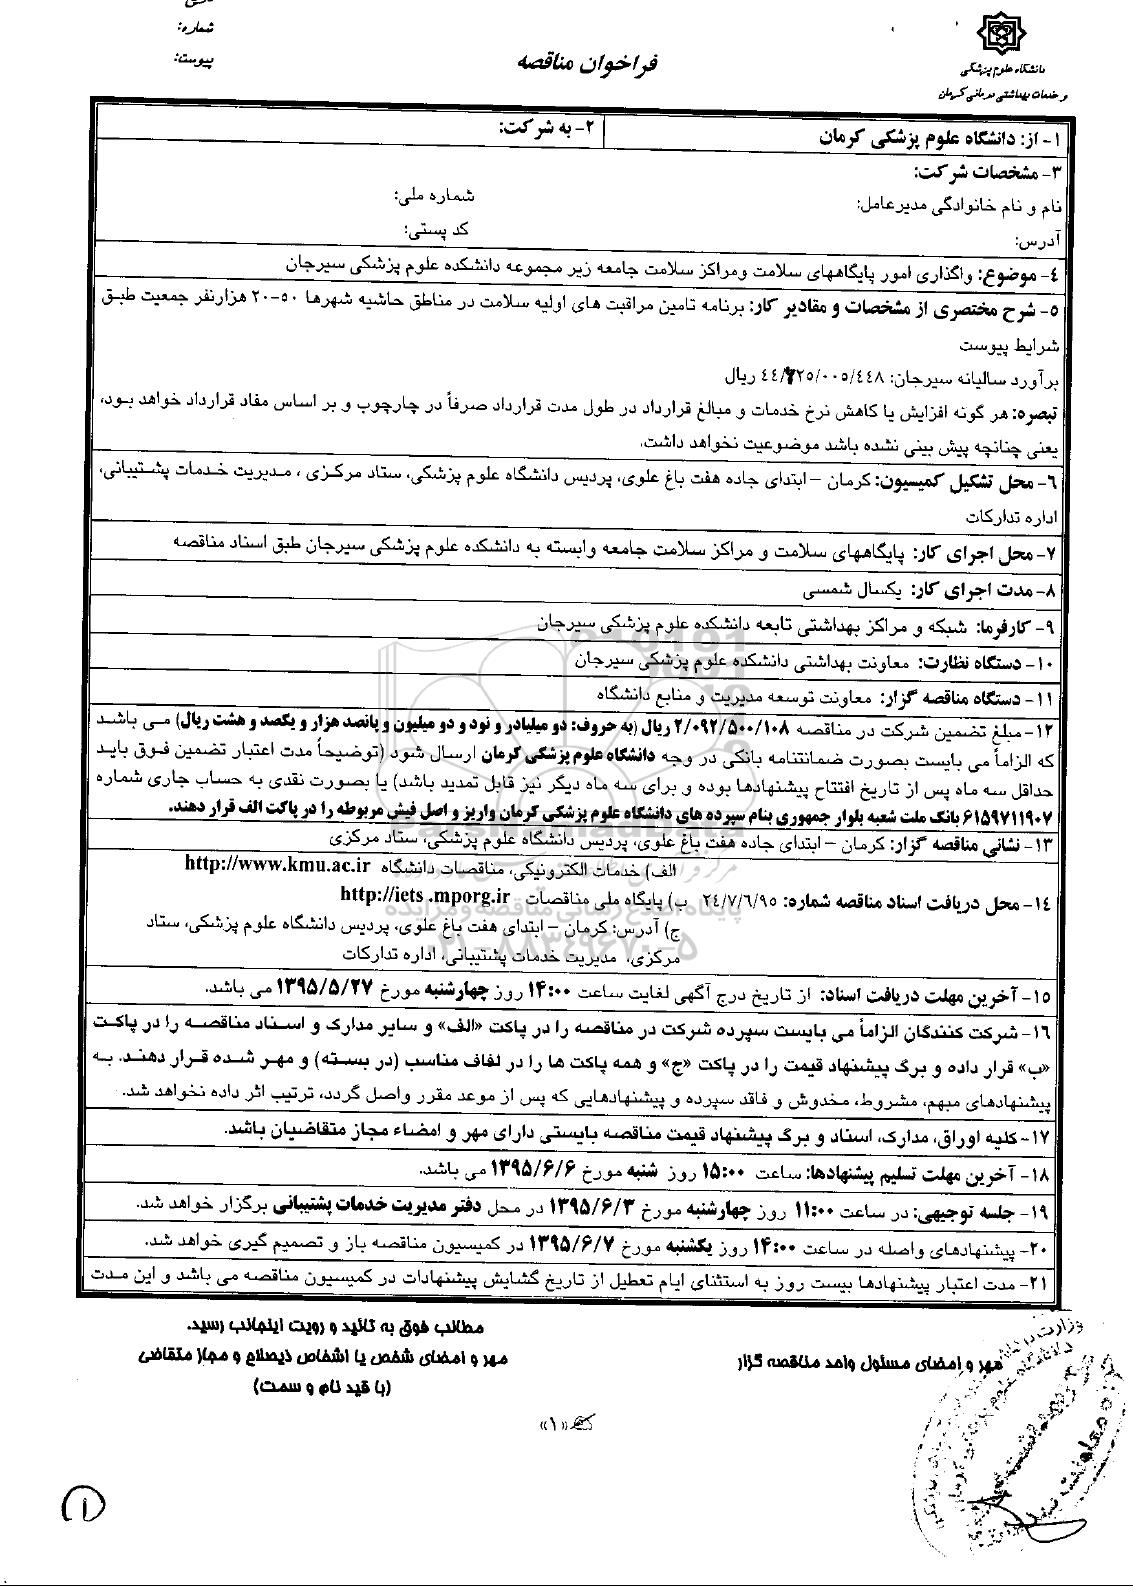 شماره:
پیوست:
فراخوان مناقصه
دانشگاه علوم پزشکی
و خدمات بهداشتی درمانی کرمان
۱- از: دانشگاه علوم پزشکی کرمان
۲- به شرکت:
۳- مشخصات شرکت:
نام و نام خانوادگی مدیرعامل:
شماره ملی:
آدرس:
کد پستی:
۴- موضوع: واگذاری امور پایگاههای سلامت ومراکز سلامت جامعه زیر مجموعه دانشکده علوم پزشکی سیرجان
۵- شرح مختصری از مشخصات و مقادیر کار: برنامه تامین مراقبت های اولیه سلامت در مناطق حاشیه شهرها ۵۰-۲۰ هزارنفر جمعیت طبق
شرایط پیوست
برآورد سالیانه سیرجان: ریال
تبصره: هر گونه افزایش یا کاهش نرخ خدمات و مبالغ قرارداد در طول مدت قرارداد صرفاً در چارچوب و بر اساس مفاد قرارداد خواهد بود،
یعنی چنانچه پیش بینی نشده باشد موضوعیت نخواهد داشت.
۶- محل تشکیل کمیسیون: کرمان – ابتدای جاده هفت باغ علوی، پردیس دانشگاه علوم پزشکی، ستاد مرکزی ، مدیریت خدمات پشتیبانی،
اداره تدارکات
۷- محل اجرای کار: پایگاههای سلامت و مراکز سلامت جامعه وابسته به دانشکده علوم پزشکی سیرجان طبق اسناد مناقصه
۸- مدت اجرای کار: یکسال شمسی
۹- کارفرما: شبکه و مراکز بهداشتی تابعه دانشکده علوم پزشکی سیرجان
۱۰- دستگاه نظارت: معاونت بهداشتی دانشکده علوم پزشکی سیرجان
۱۱- دستگاه مناقصه گزار: معاونت توسعه مدیریت و منابع دانشگاه
۱۲- مبلغ تضمین شرکت در مناقصه ۲/۰۹۲/۵۰۰/۱۰۸ ریال (به حروف: دو میلیادر و نود و دو میلیون و پانصد هزار و یکصد و هشت ریال) می باشد
که الزاماً می بایست بصورت ضمانتنامه بانکی در وجه دانشگاه علوم پزشکی کرمان ارسال شود (توضیحاً مدت اعتبار تضمین فوق باید
حداقل سه ماه پس از تاریخ افتتاح پیشنهادها بوده و برای سه ماه دیگر نیز قابل تمدید باشد) یا بصورت نقدی به حساب جاری شماره
۶۱۵۹۷۱۱۹۰۷ بانک ملت شعبه بلوار جمهوری بنام سپرده های دانشگاه علوم پزشکی کرمان واریز و اصل فیش مربوطه را در پاکت الف قرار دهند.
۱۳- نشانی مناقصه گزار: کرمان – ابتدای جاده هفت باغ علوی، پردیس دانشگاه علوم پزشکی، ستاد مرکزی
الف) خدمات الکترونیکی، مناقصات دانشگاه http://www.kmu.ac.ir
۱۴- محل دریافت اسناد مناقصه شماره: ۲۴/۷/۶/۹۵ ب) پایگاه ملی مناقصات http://iets .mporg.ir
ج) آدرس: کرمان – ابتدای هفت باغ علوی، پردیس دانشگاه علوم پزشکی، ستاد
مرکزی، مدیریت خدمات پشتیبانی، اداره تدارکات
۱۵- آخرین مهلت دریافت اسناد: از تاریخ درج آگهی لغایت ساعت ۱۴:۰۰ روز چهارشنبه مورخ ۱۳۹۵/۵/۲۷ می باشد.
۱۶- شرکت کنندگان الزاماً می بایست سپرده شرکت در مناقصه را در پاکت «الف» و سایر مدارک و اسناد مناقصه را در پاکت
«ب» قرار داده و برگ پیشنهاد قیمت را در پاکت «ج» و همه پاکت ها را در لفاف مناسب (در بسته) و مهر شده قرار دهند. به
پیشنهادهای مبهم، مشروط، مخدوش و فاقد سپرده و پیشنهادهایی که پس از موعد مقرر واصل گردد، ترتیب اثر داده نخواهد شد.
۱۷- کلیه اوراق، مدارک، اسناد و برگ پیشنهاد قیمت مناقصه بایستی دارای مهر و امضاء مجاز متقاضیان باشد.
۱۸- آخرین مهلت تسلیم پیشنهادها: ساعت ۱۵:۰۰ روز شنبه مورخ ۱۳۹۵/۶/۶ می باشد.
۱۹- جلسه توجیهی: در ساعت ۱۱:۰۰ روز چهارشنبه مورخ ۱۳۹۵/۶/۳ در محل دفتر مدیریت خدمات پشتیبانی برگزار خواهد شد.
۲۰- پیشنهادهای واصله در ساعت ۱۴:۰۰ روز یکشنبه مورخ ۱۳۹۵/۶/۷ در کمیسیون مناقصه باز و تصمیم گیری خواهد شد.
۲۱- مدت اعتبار پیشنهادها بیست روز به استثنای ایام تعطیل از تاریخ گشایش پیشنهادات در کمیسیون مناقصه می باشد و این مدت
مطالب فوق به تائید و رویت اینجانب رسید.
مهر و امضای مسئول واحد مناقصه گزار
مهر و امضای شخص یا اشخاص ذیصلاح و مجاز متقاضی
(با قید نام و سمت)
«۱»
۱